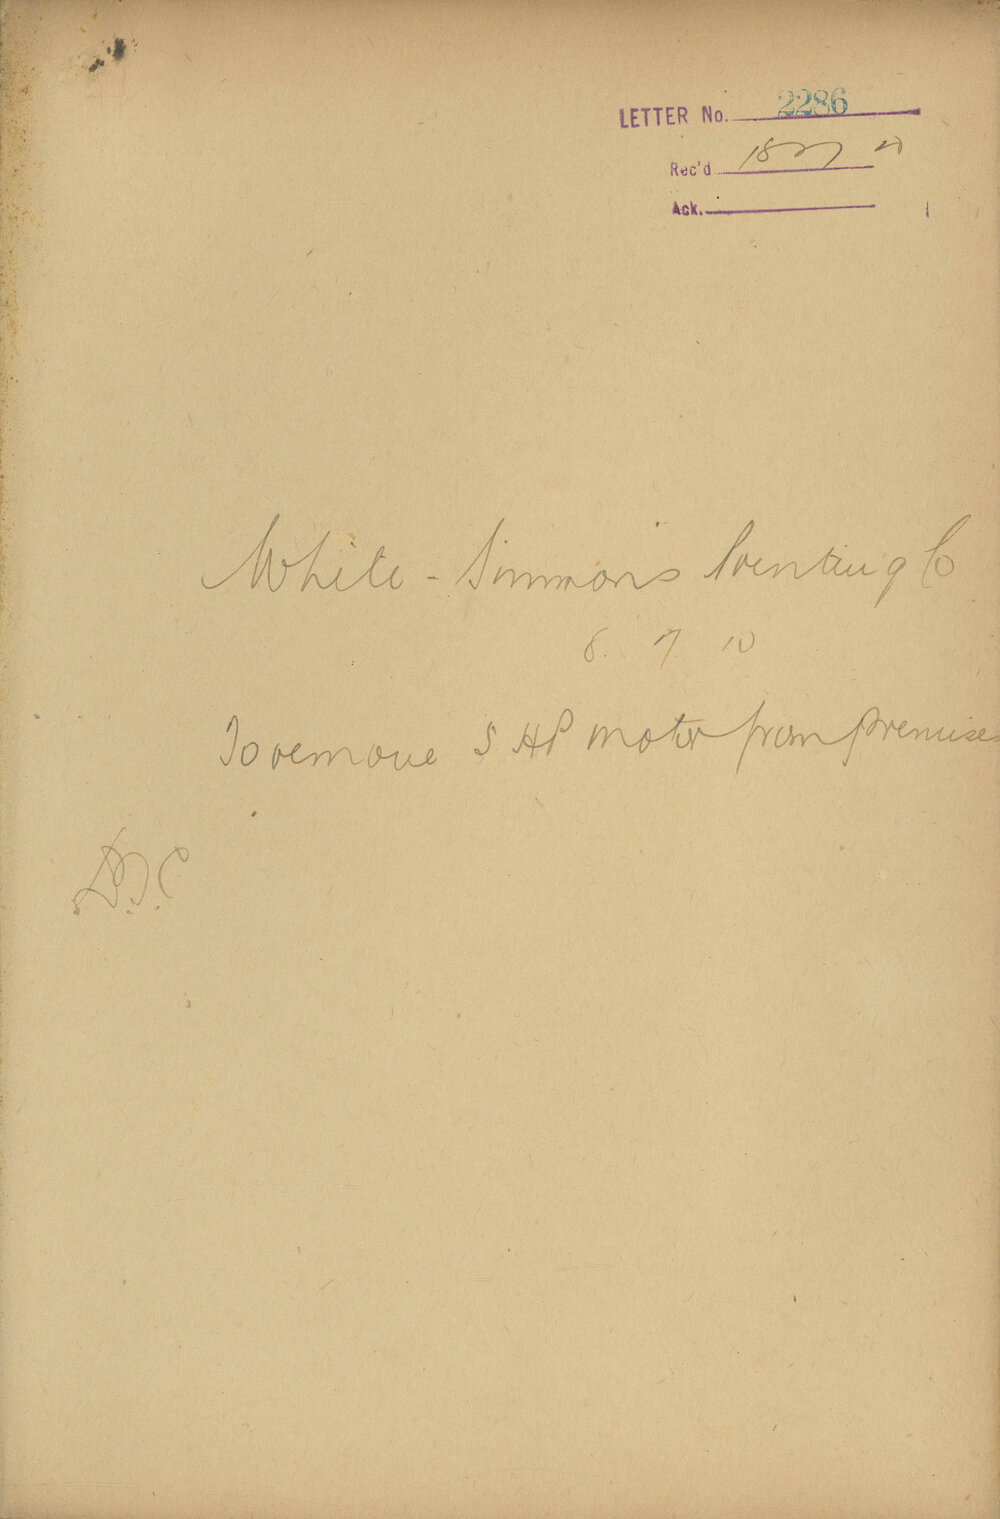 LETTER No. 2286
Rec'd 18 7 10
Ack.
White-Simmons Printing Co
8. 7 10
To remove 5 HP motor from premises